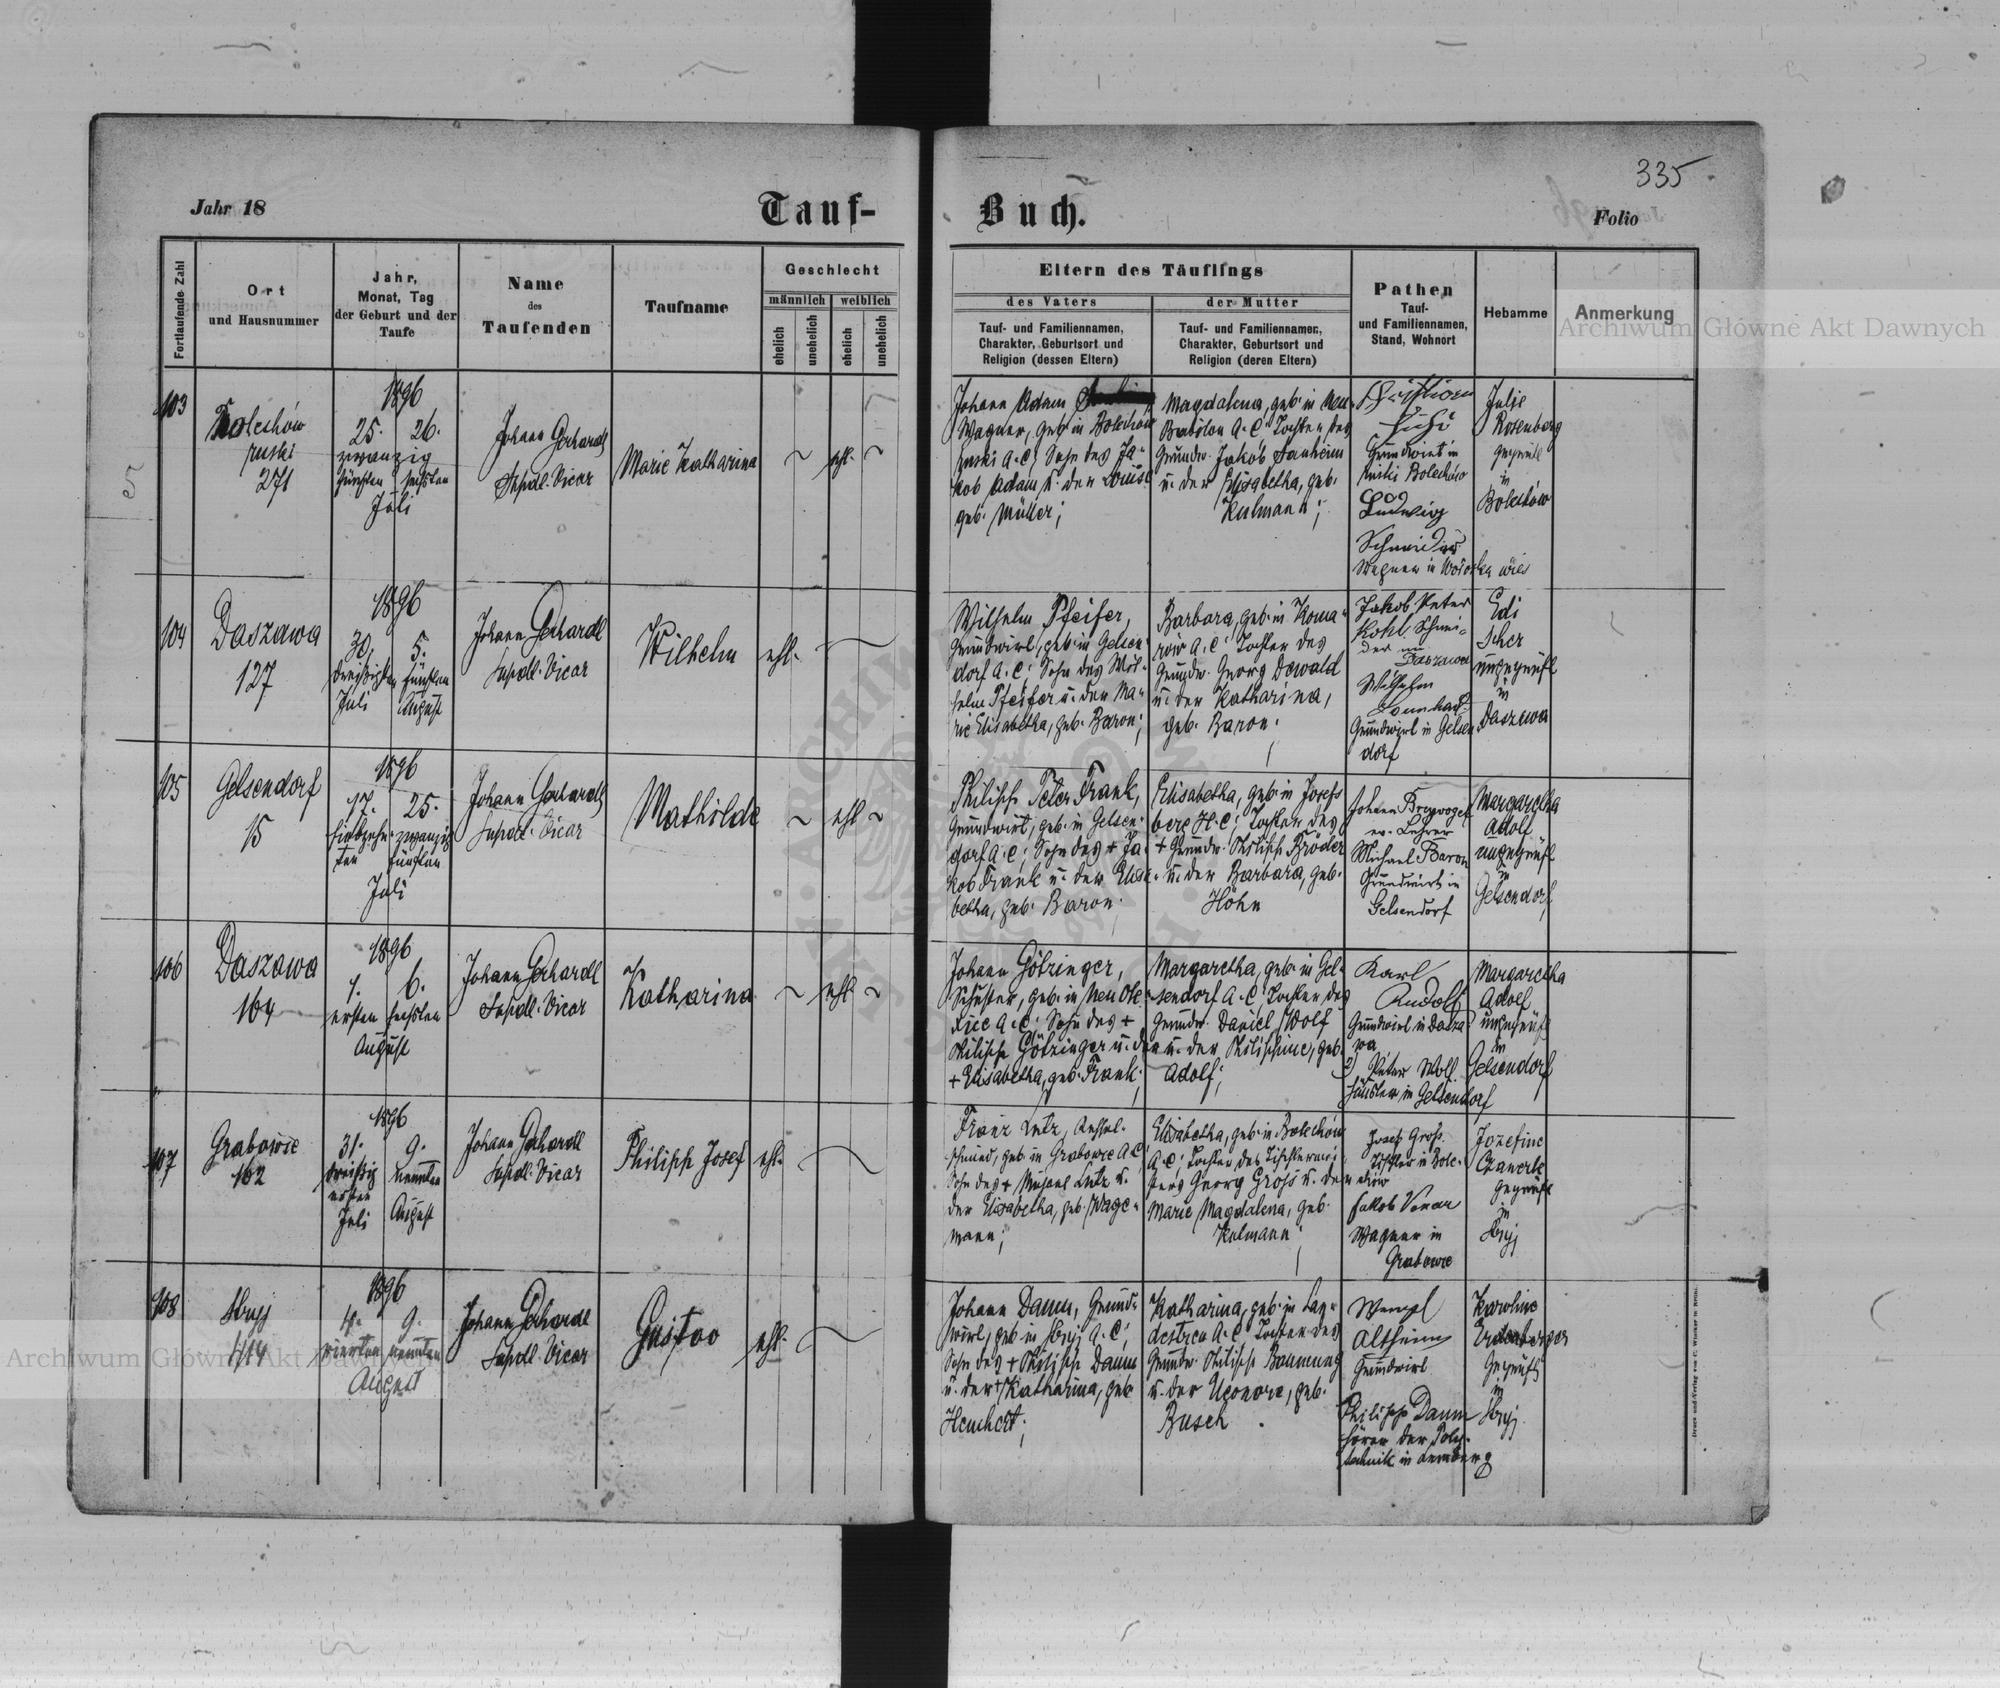 335
Jahr 18
Tauf-
Buch.
Folio
Fortlaufende Zahl
Ort
und Hausnummer
Jahr,
Monat, Tag
der Geburt und der
Taufe
Name
des
Taufenden
Taufname
Geschlecht
männlich
weiblich
ehelich
unehelich
ehelich
unehelich
Eltern des Täuflings
des Vaters
Tauf- und Familiennamen,
Charakter, Geburtsort und
Religion (dessen Eltern)
der Mutter
Tauf- und Familiennamen,
Charakter, Geburtsort und
Religion (deren Eltern)
Pathen
Tauf-
und Familiennamen,
Stand, Wohnort
Hebamme
Anmerkung
Archiwum Główne Akt Dawnych
103
Bolechów
ruski
271
1896
25. 26.
zwanzig
fünften sechsten
Juli
Johann Gerhardt
Supdl. Vicar
Marie Katharina
ehl.
Johann Adam
Wagner, geb. in Bolechów
ruski A.C; Sohn des Ja-
kob Adam u. der Louise
geb. Müller;
Magdalena, geb. in Neu-
Babilon A.C. Tochter des
Grundw. Jakob
u. der Elisabetha, geb.
Kulmann;
Christian
Grundwirt in
Ruski Bolechów
Ludwig
Schneider
Wagner in
Julie
Rosenberg
geprüft
in
Bolechów
104
Daszawa
127
1896
30. 5.
dreißigsten fünften
Juli August
Johann Gerhardt
Supdl. Vicar
Wilhelm
ehl.
Wilhelm Pfeifer,
Grundwirt, geb. in Gelsen-
dorf A.C; Sohn des Wil-
helm Pfeifer u. der Ma-
rie Elisabetha, geb. Baron;
Barbara, geb. in Koma-
rów A.C. Tochter des
Grundw. Georg Dewald
u. der Katharina,
geb. Baron.
Jakob Peter
Kohl, Schnei-
der in
Daszawa
Wilhelm
Grundwirt in Gelsen
dorf
Edi
Scher
ungeprüft
in
Daszawa
105
Gelsendorf
15
1896
17. 25.
siebzehn- zwanzig
ten fünften
Juli
Johann Gerhardt
Supdl. Vicar
Mathilde
ehl.
Philipp Peter Frank,
Grundwirt, geb. in Gelsen-
dorf A.C; Sohn des + Ja-
kob Frank u. der Elisa-
betha, geb. Baron.
Elisabetha, geb. in Josefs
berg H.C; Tochter des
+ Grundw. Philipp Bröder
u. der Barbara, geb.
Höhn
Johann
ev. Lehrer
Michael Baron
Grundwirt in
Gelsendorf
Margaretha
Adolf
ungeprüft
in
Gelsendorf
106
Daszawa
164
1896
1. 6.
ersten sechsten
August
Johann Gerhardt
Supdl. Vicar
Katharina
ehl.
Johann Götzinger,
Schuster, geb. in Neu
A.C; Sohn des +
Philipp Götzinger u. der
+ Elisabetha, geb. Frank;
Margaretha, geb. in Gel-
sendorf A.C. Tochter des
Grundw. Daniel Wolf
u. der Philippine, geb.
Adolf;
Karl
Rudolf
Grundwirt in Dasza
wa
2) Peter Woll
Häusler in Gelsendorf
Margaretha
Adolf
ungeprüft
in
Gelsendorf
107
Grabowce
162
1896
31. 9.
dreißig neunten
ersten
Juli August
Johann Gerhardt
Supdl. Vicar
Philipp Josef
ehl.
Franz Lutz, Kessel-
schmied, geb. in Grabowce A.C,
Sohn des + Michael Lutz u.
der Elisabetha, geb. Wage-
mann;
Elisabetha, geb. in Bolechów
A.C; Tochter des Tischlermei-
sters Georg Groß u. der
Marie Magdalena, geb.
Kulmann;
Josef Groß.
Tischler in Bole-
chów
Jakob
Wagner in
Grabowce
Jozefine
geprüft
in
Stryj
108
Stryj
414
1896
4. 9.
vierten neunten
August
Johann Gerhardt
Supdl. Vicar
Gustav
ehl.
Johann Daum, Grund-
wirt, geb. in Stryj A.C;
Sohn des + Philipp Daum
u. der + Katharina, geb.
Katharina, geb. in
A.C. Tochter des
Grundw. Philipp Baumung
u. der Eleonore, geb.
Busch.
Altheim
Grundwirt
Philipp Daum
Hörer der Poly-
technik in Lemberg
Karoline
geprüft
in
Stryj
Archiwum Główne Akt Dawnych